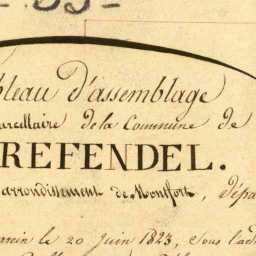 bleau d'assemblage
parcellaire de la Commune de
REFENDEL.
arrondissement de Montfort, dépa
le 20 Juin 1823, sous l'ad